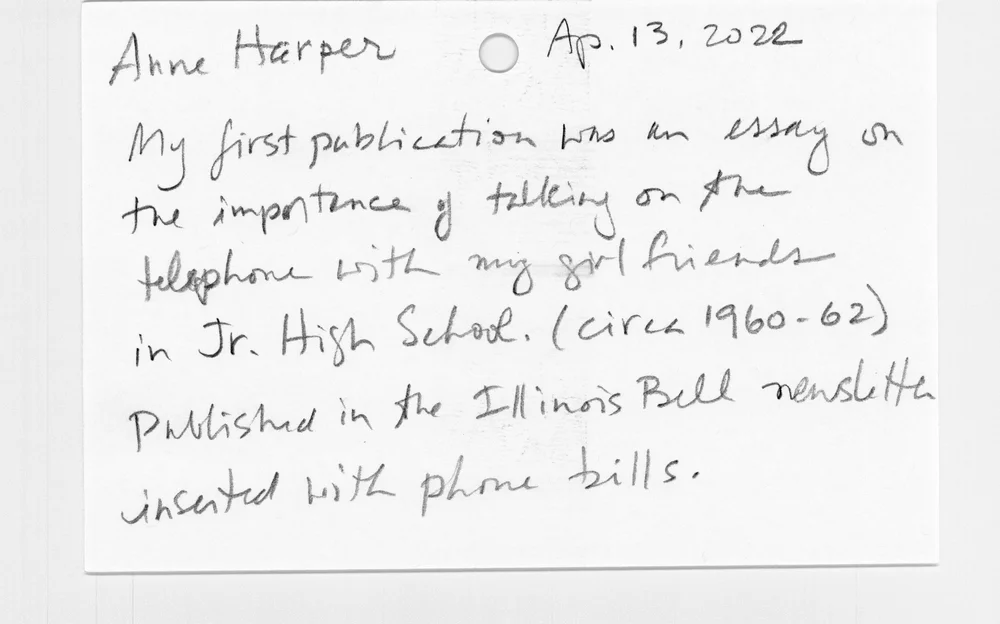 Anne Harper Ap. 13, 2022
My first publication was an essay on
the importance of talking on the
telephone with my girl friends
in Jr. High School. (circa 1960-62)
Published in the Illinois Bell newsletter
inserted with phone bills.